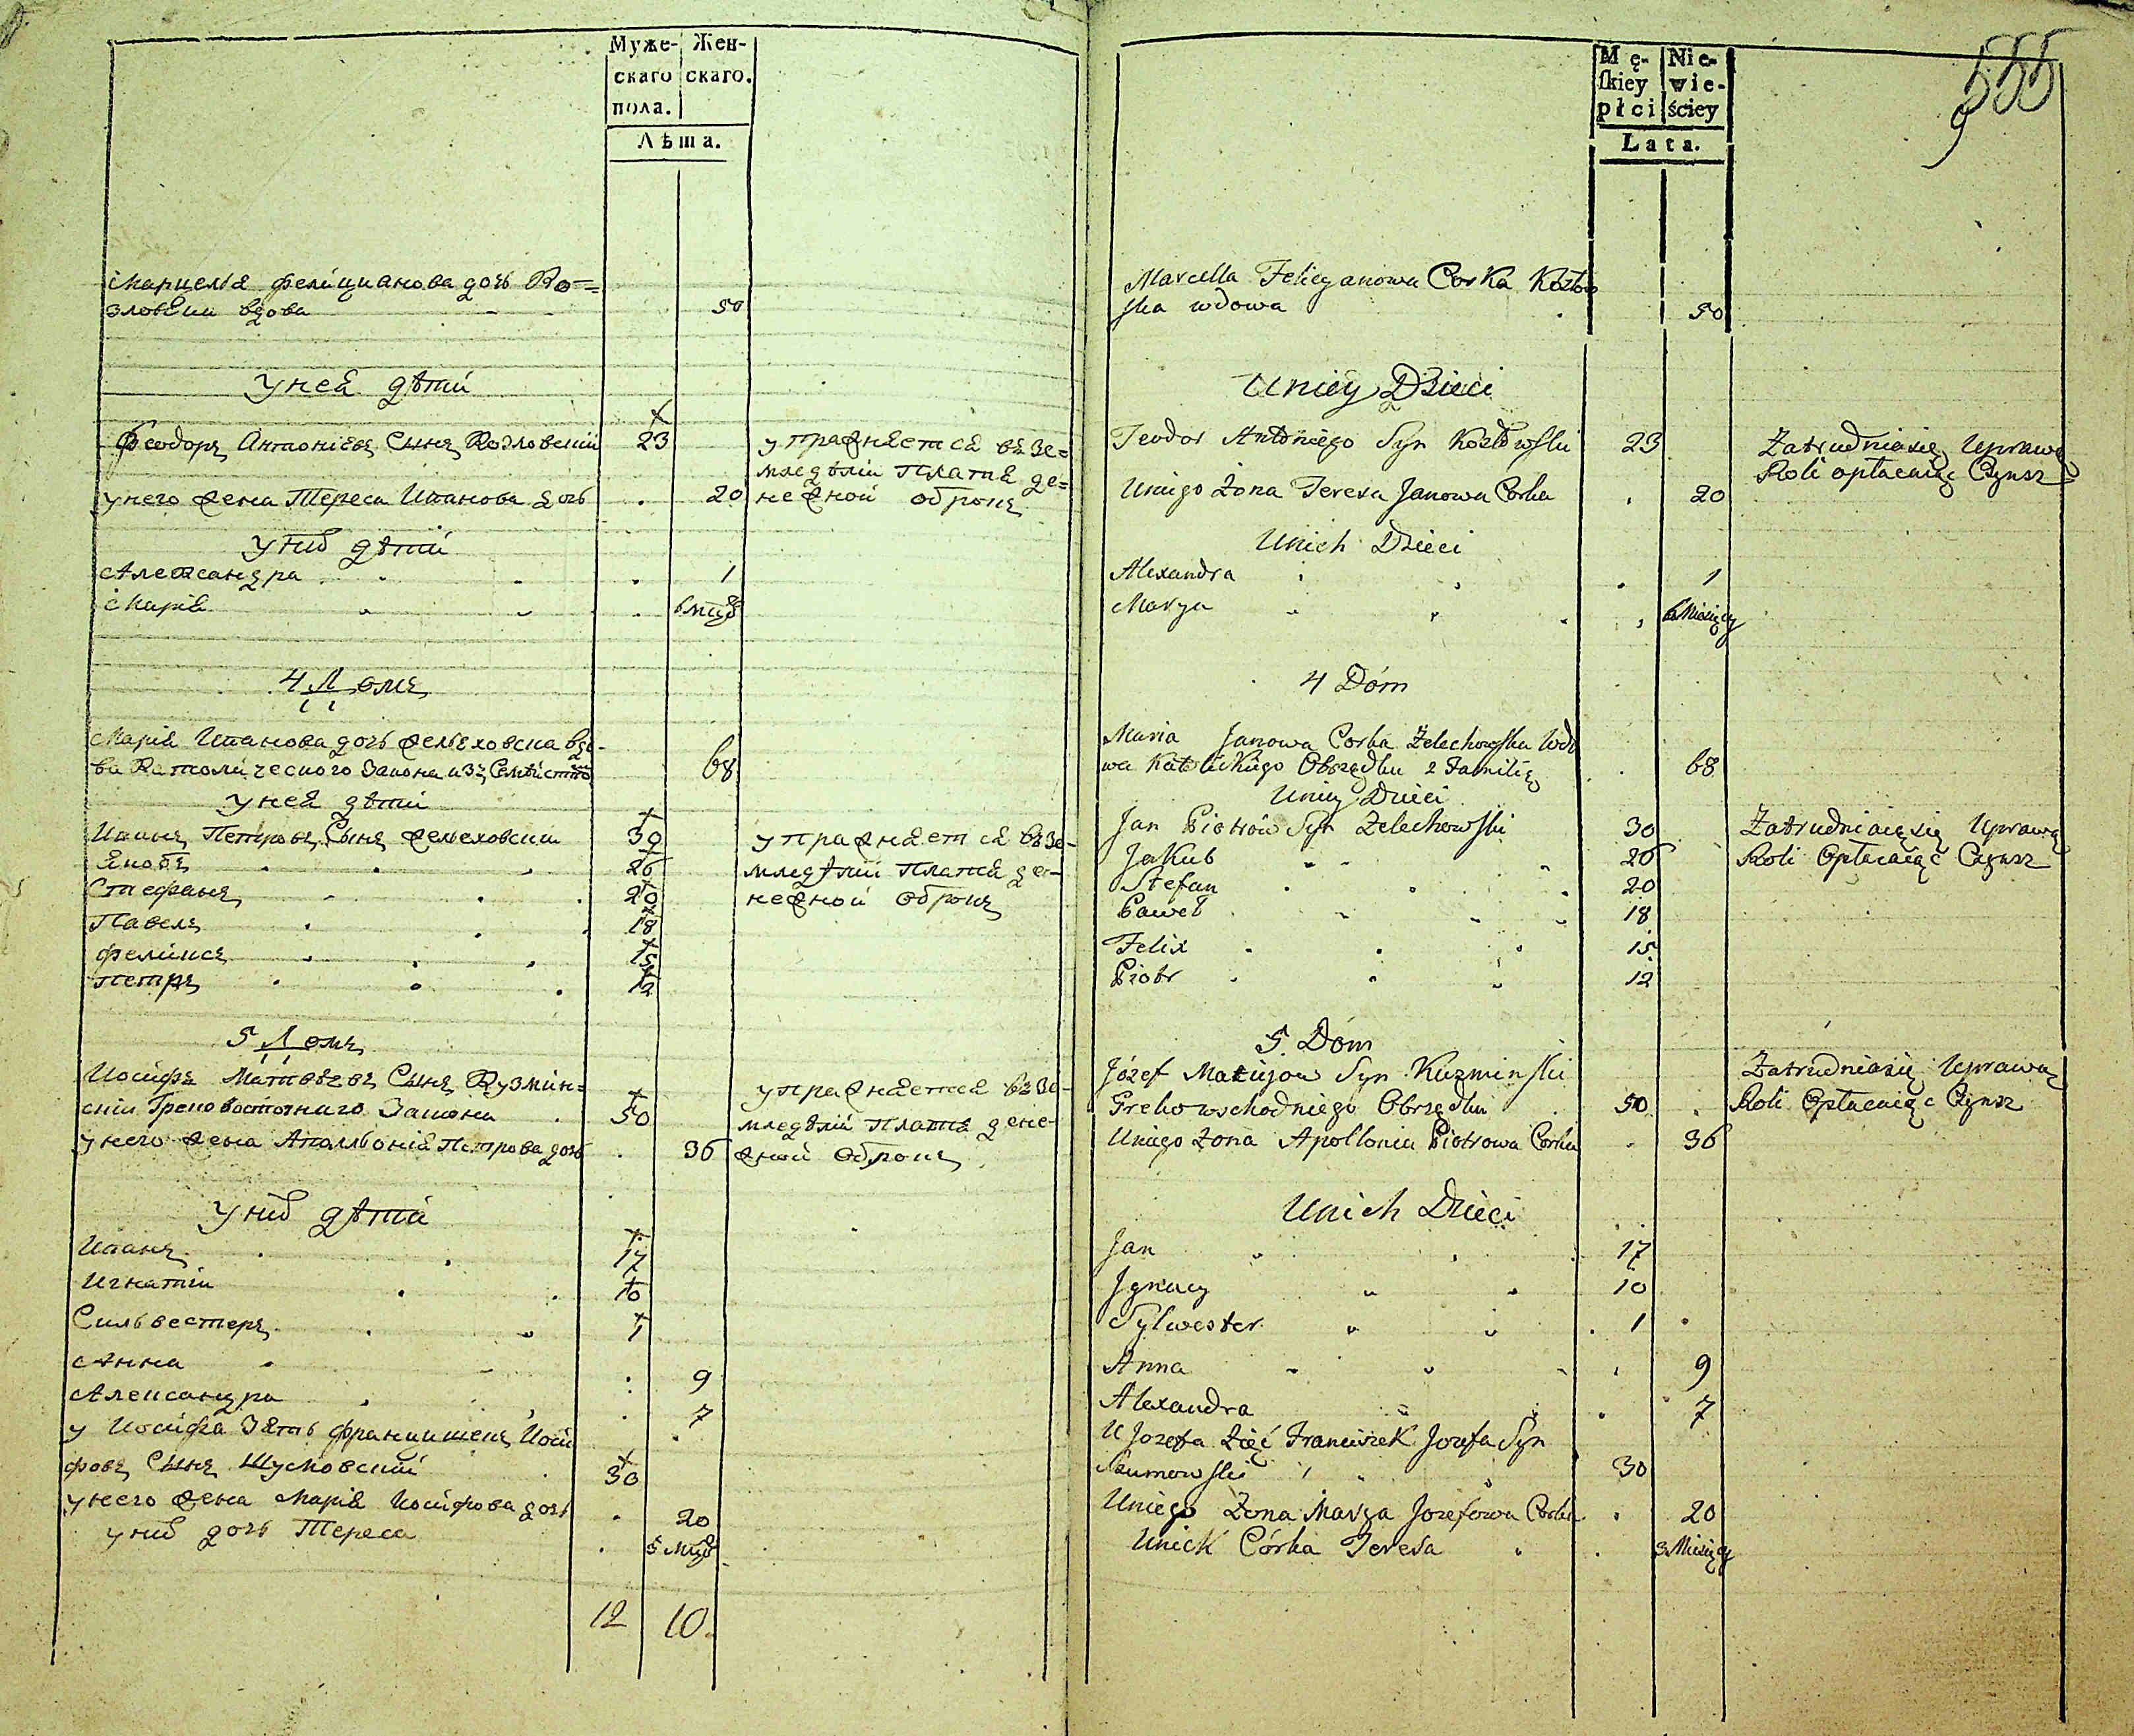 Муже- Жен-
скаго скаго.
пола.
Лѣта.
Марцеля Фелицианова дочь Ко=
зловски вдова 50
у ней дѣти
Феодоръ Антоніевъ Сынъ Козловскій 23 упражняется въ зе=
мледѣлїи платя де=
у него жена Тереса Иванова дочь . 20 нежной оброкъ
у них дѣти
Александра . 1
Марія . 6 мцѣ
4 Домъ
Марія Иванова дочь Желеховска вдо-
ва Католического Закона изъ Семѣйством 68
у ней дѣти
Иванъ Петровъ Сынъ Желеховски 30 упражняется въ зе-
Якобъ 26 мледѣлїи платя де-
Стефанъ 20 нежной оброкъ
Павелъ 18
Феликсъ 15
Петръ 12
5 Домъ
Иосифъ Матвѣевъ Сынъ Кузмин=
скій Греко восточнаго Закона 50 упражняется въ зе-
мледѣлїи платя дене-
у него жена Аполлонія Петрова дочь . 36 жной оброкъ
у них дѣти
Иванъ 17
Игнатій 10
Сильвестеръ 1
Анна 9
Александра 7
у Иосифа Зять Францишекъ Иоси
фовъ Сынъ Шумовскій 30
у него жена Марія Иосифова дочь . 20
у них дочь Тереса . 5 мцѣ
12 10.
Mę- Nie-
ſkiey wie-
płci ściey
Lata.
555
9
Marcella Felicyanowa Corka Kozłow
ska wdowa 50
Uniey Dzieci
Teodor Antoniego Syn Kozłowski 23 Zatrudniasię Uprawą
Roli opłacaiąc Czynsz
Uniego Żona Teresa Janowa Corka . 20
Unich Dzieci
Alexandra . 1
Marya . 6 Miesięcy
4 Dóm
Maria Janowa Corka Zelechowska Wdo
wa Katolickiego Obrządku z Familią 68
Uniey Dzieci
Jan Piotrów Syn Zelechowski 30 Zatrudniaięsię Uprawą
Jakub 26 Roli Opłacaiąc Czynsz
Stefan 20
Paweł 18
Felix 15
Piotr 12
5 Dóm
Józef Maciejow Syn Kuzminski Zatrudniasię Uprawą
Greko wschodniego Obrządku 50 Roli Opłacaiąc Czynsz
Uniego żona Apollonia Piotrowa Corka . 36
Unich Dzieci
Jan 17
Jgnacy 10
Sylwester 1
Anna 9
Alexandra 7
U Jozefa Zięć Franciszek Jozefa Syn
Szumowski 30
Uniego Żona Marya Jozefowa Corka . 20
Unich Córka Teresa . 5 Miesięcy